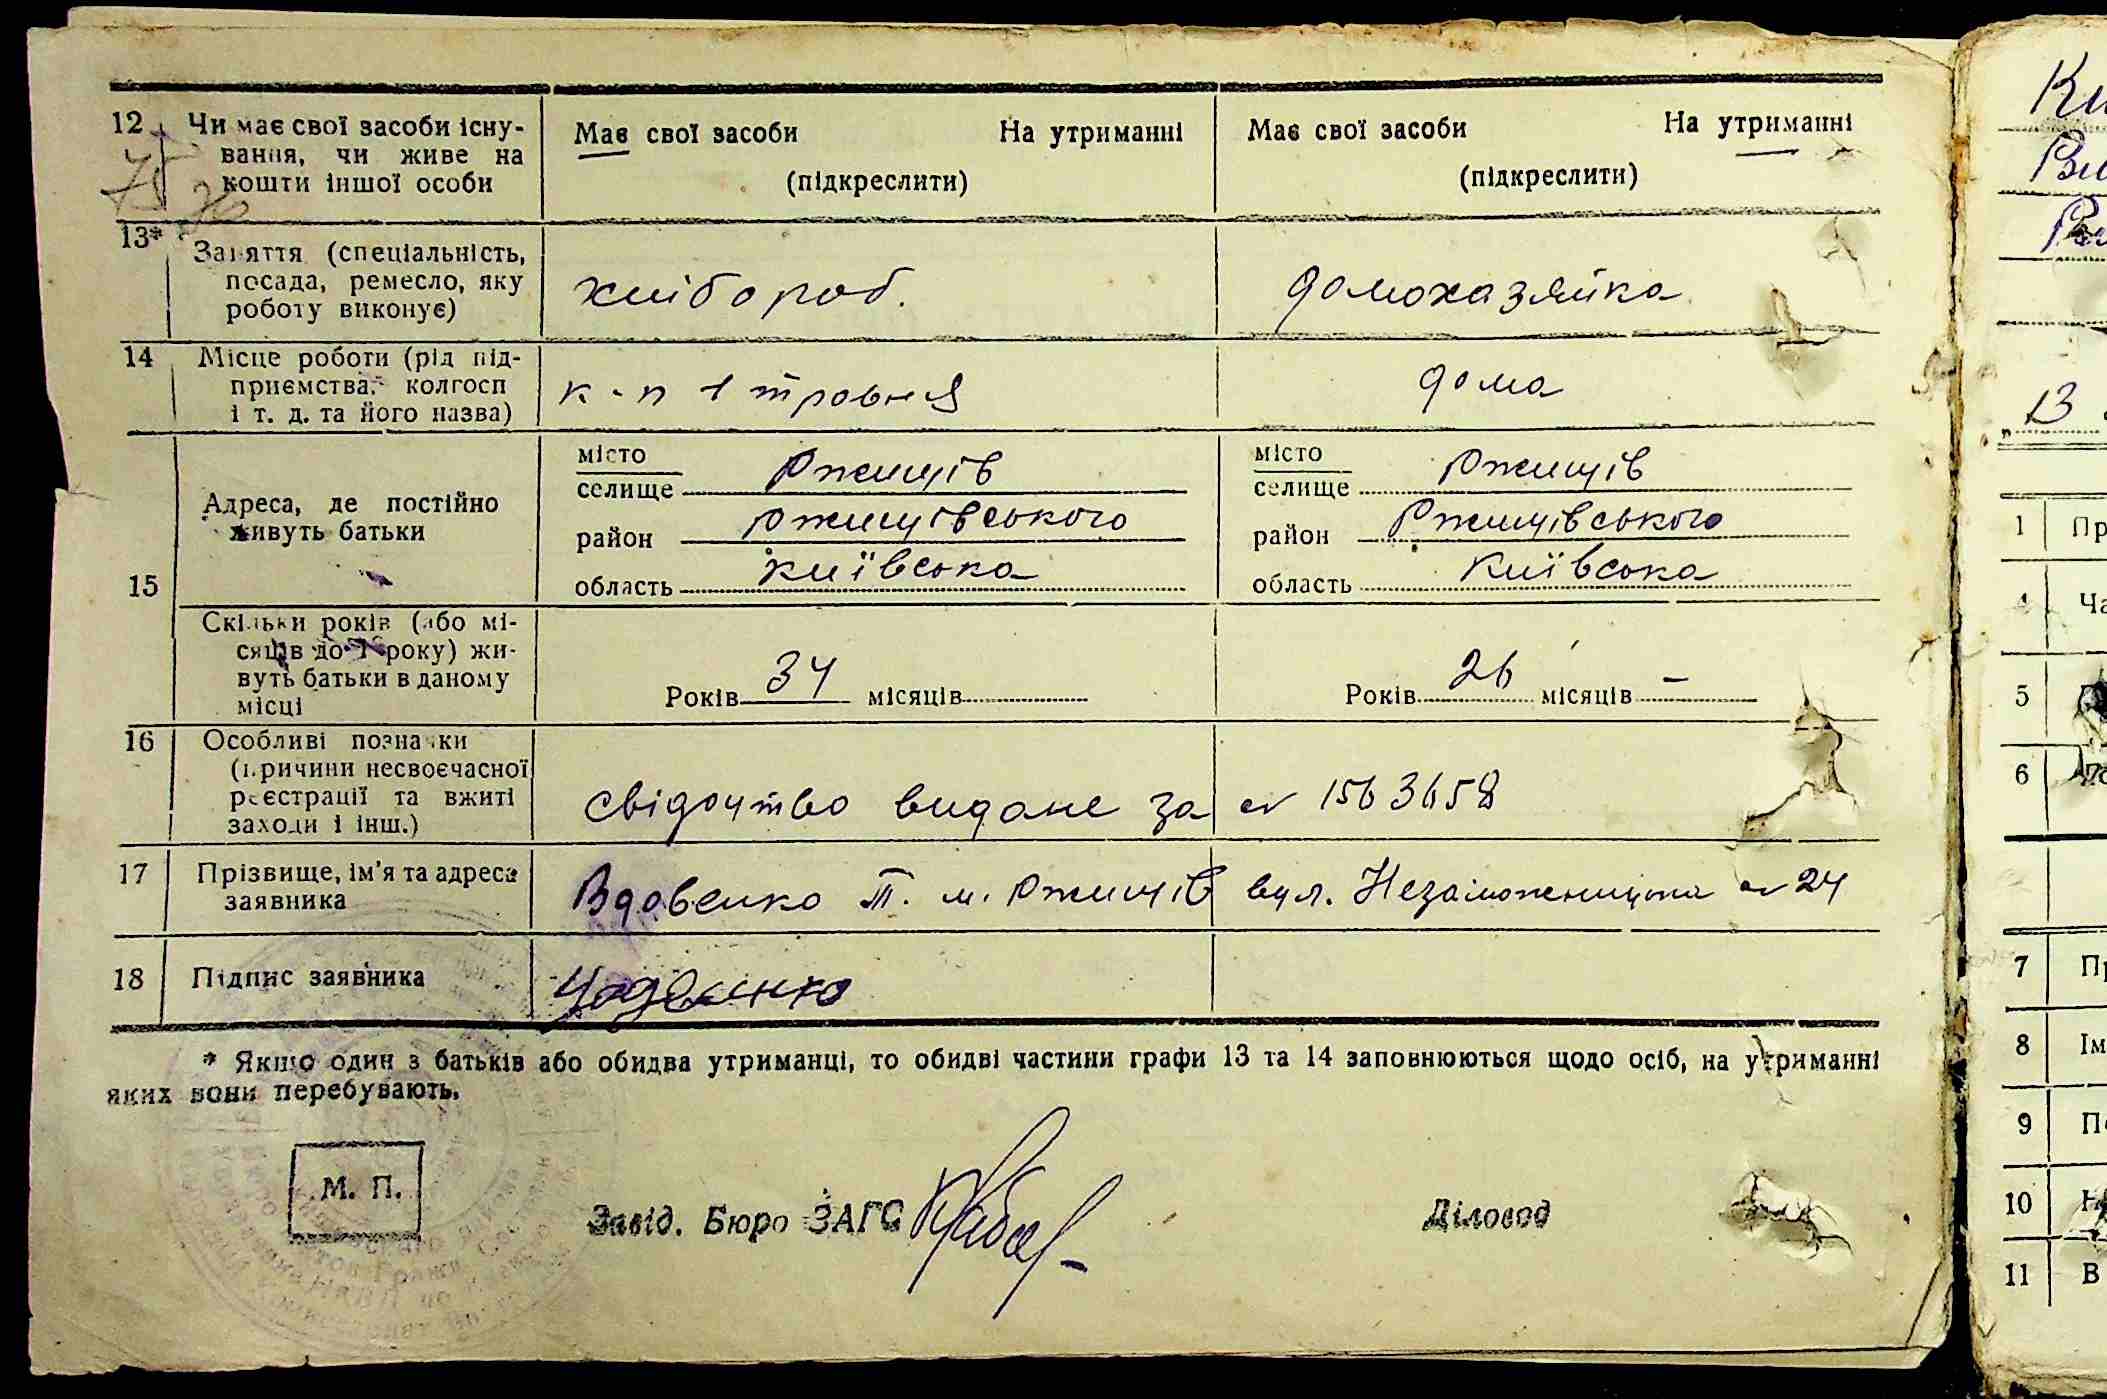 12 Чи має свої засоби існу-
вання, чи живе на
кошти іншої особи
Має свої засоби На утриманні
(підкреслити)
Має свої засоби На утриманні
(підкреслити)
13* Заняття (спеціальність,
посада, ремесло, яку
роботу виконує)
хлібороб.
домохазяйка
14 Місце роботи (рід під-
приємства, колгосп
і т. д. та його назва)
к-п 1 травня
дома
15
Адреса, де постійно
живуть батьки
місто
селище Ржищів
район Ржищівського
область Київська
місто
селище Ржищів
район Ржищівського
область Київська
Скільки років (або мі-
сяців до 1 року) жи-
вуть батьки в даному
місці
Років 34 місяців
Років 26 місяців -
16 Особливі позначки
(причини несвоєчасної
реєстрації та вжиті
заходи і інш.)
свідоцтво видане за № 1563658
17 Прізвище, ім'я та адреса
заявника
Вдовенко Т. м. Ржищів вул. Незаможницька № 24
18 Підпис заявника
* Якщо один з батьків або обидва утриманці, то обидві частини графи 13 та 14 заповнюються щодо осіб, на утриманні
яких вони перебувають.
М. П.
Завід. Бюро ЗАГС
Діловод
Ки
13
1 Пр
4 Ча
5
6
7 Пр
8 Ім
9 По
10 Н
11 В